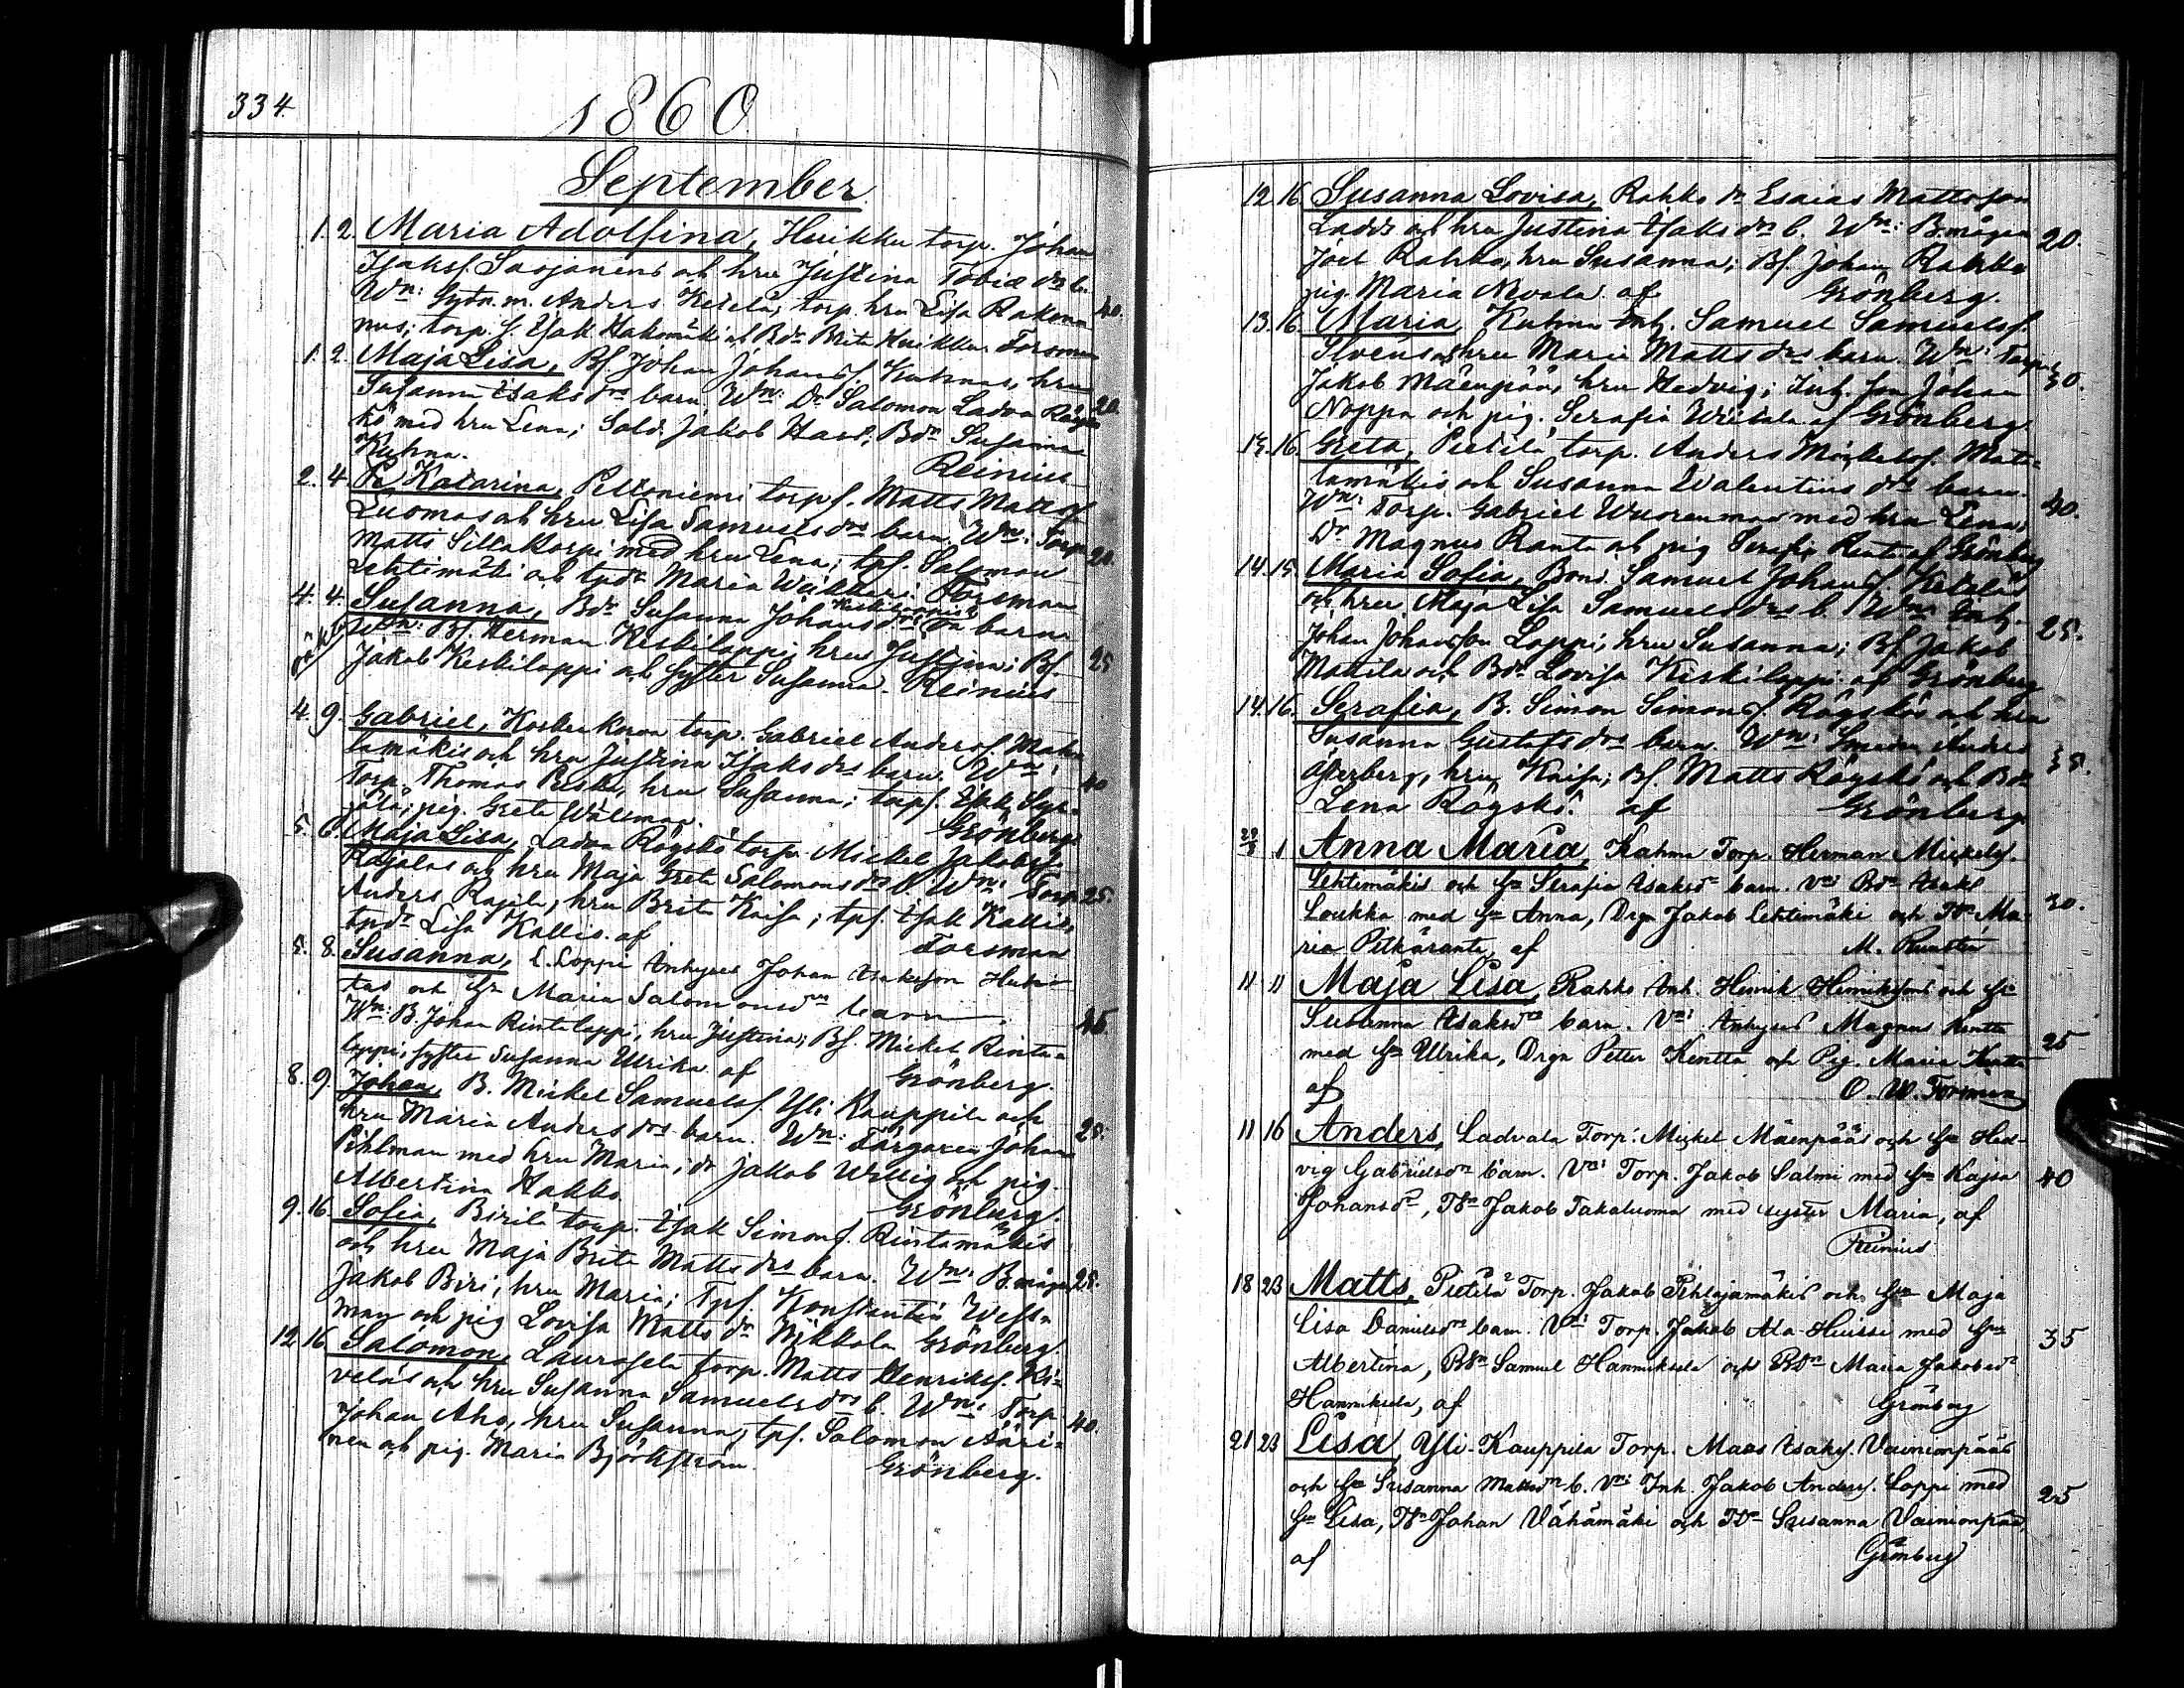 334.
1860
September
1. 2. Maria Adolfina, Huikku torp. Johan
Isaksf. Saojanens och hru Justina Tobia drs b.
Wn: Sytn.m. Anders Ketela, torp. hru Lisa Rakenn
nus; torp. s. Isak Hakomäki och Bdr Brita Huikku. Forsman 40.
1. 2. Maja Lisa, Bf. Johan Johansf Kuhnas, hru
Susanna Isaks drs barn. Wn: Dr. Salomon Ladva Rögs 20.
kö med hru Lena; Sold. Jakob Hast, Bdr Susanna
Kuhna. Reinius
2. 4. Katarina, Peltoniemi torps. Matts Mattsf
Luomas och hru Lisa Samuels drs barn. Wn: Torp
Matts Siltakorpi med hru Lena; tps. Salomon 20.
Lehtimäki och tpdr Maria Wäkkeri. Forsman
4. 4. Susanna, Bdr Susanna Johans drs barn
Wn: Bf. Herman Keskiloppi, hru Justina; Bf. 25
Jakob Keskiloppi och syster Susanna. Reinius
4. 9. Gabriel, torp. Gabriel Andersf. Mata
lamäkis och hru Justina Isaks drs barn. Wn:
Torp. Thomas hru Susanna; torps. Isak 40
pig. Greta Wälimaa. Grönberg
5. 6. Maja Lisa, Ladva Rögskö torp. Mickel Jakobsf.
Rajalas och hru Maja Greta Salomons drs b. Wn: Torp 25.
Anders Rajala, hru Brita Kaisa; tps. Isak Kallis,
tpdr Lisa Kallis. af Forsman
5. 8. Susanna, L. Loppi Inhyses Johan Isaksson
och hr Maria Salomonsdrs barn.
Wn: B. Johan Rintaloppi, hru Justina; Bf. Mickel Rinta=
loppi, syster Susanna Ulrika af Grönberg.
8. 9. Johan, B. Mickel Samuelsf. Yli Kauppila och
hru Maria Anders drs barn. Wn: Färgaren Johan 25.
Pihlman med hru Maria; dr Jakob Wellig och pig.
Albertina Hakko. Grönberg.
9. 16. Sofia, Birilä torp. Isak Simonsf. Rintamäkis
och hru Maja Brita Matts drs barn. Wn: B.mågen 25.
Jakob Biri, hru Maria; Tps. Konstantin
man och pig Lovisa Matts dr Nikkola Grönberg.
12. 16. Salomon, Laurosela torp. Matts Henriksf. Ki=
veläs och hru Susanna Samuels drs b. Wn: Torp
Johan Aho, hru Susanna; tps. Salomon Ääri= 40.
nen och pig. Maria Björkström. Grönberg.
12. 16. Susanna Lovisa, Rahko dr Esaias Mattsson
Ladds och hru Justina Isaks drs b. Wn: B.mågen 20.
Joel Rahko, hru Susanna; Bf. Johan Rahko
pig. Maria Nivala. af Grönberg.
13. 16. Maria, Kuhna Inh. Samuel Samuelsf.
och hru Maria Matts drs barn. Wn: Torp. 30.
Jakob Mäenpää, hru Hedvig; Inh. son Johan
Noppa och pig. Serafia Wiitala af Grönberg
14. 16. Greta, Pietilä torp. Anders Mickelsf. Mata=
lamäkis och Susanna Walentins drs barn.
Wn: Torp. Gabriel Wuorenmaa med hru Lena, 40.
Dr. Magnus Ranta och pig Serafia Ranta af Grönberg
14. 15. Maria Sofia, Bond. Samuel Johansf Ketelas
och hru Maja Lisa Samuels drs b. Wn: Inh. 25.
Johan Johansson Loppi, hru Susanna; Bf Jakob
Mattila och Bdr Lovisa Keskiloppi af Grönberg
14. 16. Serafia, B. Simon Simonsf. Rögskös och hru
Susanna Gustafs drs barn. Wn: Smeden Anders 35.
Österberg, hru Kaisa; Bf. Matts Rögskö och Bdr
Lena Rögskö. af Grönberg
29/8 1 Anna Maria, Kahma Torp. Herman Mickelsf.
Lehtimäkis och hr Serafia Isaksdr barn. Vn: Bdn Isak
Loukko med hr Anna, Drgn Jakob Lehtimäki och Tdr Ma= 30.
ria Pitkäranta, af M.
11 11 Maja Lisa, Rahko Inh. Henrik Henrikssons och hr
Susanna Isaksdrs barn. Vn: Inhyses Magnus Kentta 25
med hr Ulrika, Drgn Petter Kentta och Pig. Maria Kentta
af O. W. Forsman
11 16 Anders, Ladvala Torp: Mickel Mäenpääs och hr Hed=
vig Gabrielsdrs barn. Vn: Torp. Jakob Salmi med hr Kajsa 40
Johansdr, Tsn Jakob Takaluoma med syster Maria, af
Reinius
18 23 Matts, Pietilä Torp. Jakob Pihlajamäkis och hr Maja
Lisa Danielsdrs barn. Vn: Torp. Jakob Ala-Huissi med hr 35
Albertina, BSn Samuel Hannuksela och BDr Maria Jakobsdr
Hannuksela, af Grönberg
21 23 Lisa, Yli-Kauppila Torp. Maas Isaksf. Vainionpääs
och hr Susanna Mattsdrs b. Vn: Inh. Jakob Andersf. Loppi med 25
hr Lisa, TSn Johan Vähämäki och TDr Susanna Vainionpää,
af Grönberg